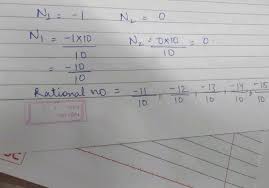 N₁ = -1 N₂ = 0
N₁ = -1×10/10 N₂ = 0×10/10 = 0
= -10/10
Rational no = -11/10, -12/10, -13/10, -14/10, -15/10